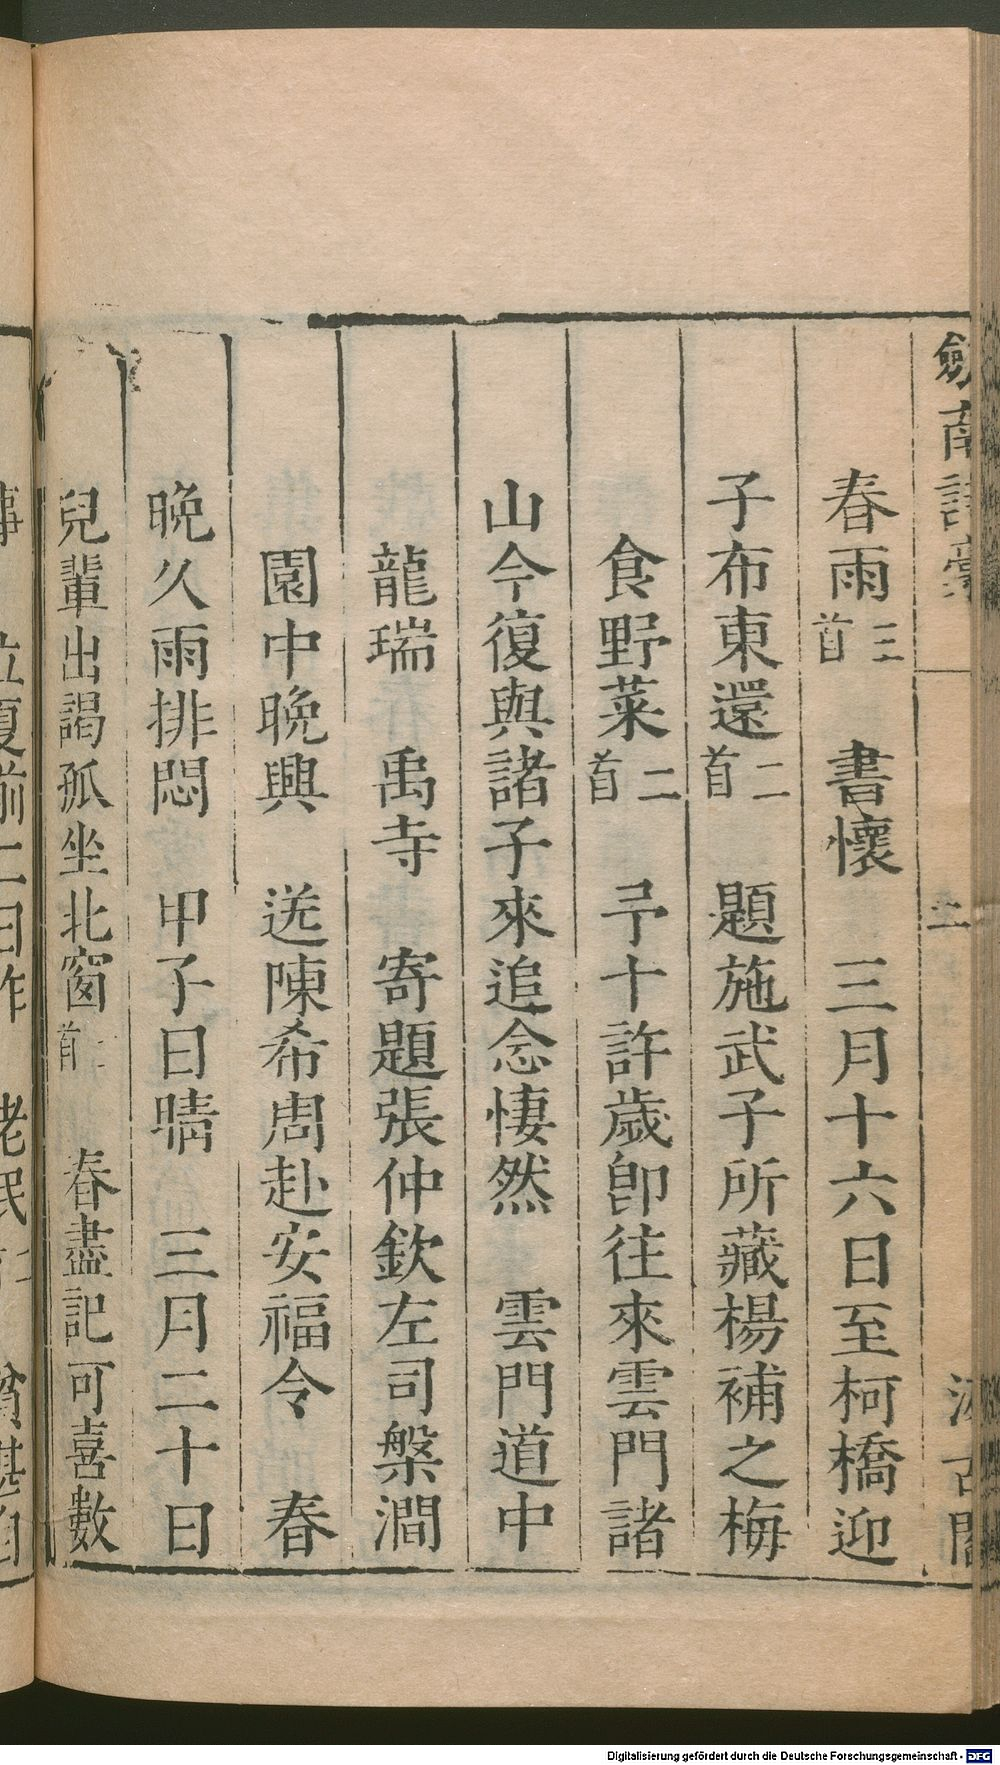 劒南詩稾
汲古閣
春雨三首　書懷　三月十六日至柯橋迎
子布東還二首　題施武子所藏楊補之梅
食野菜二首　予十許歲卽往來雲門諸
山今復與諸子來追念悽然　雲門道中
龍瑞　禹寺　寄題張仲欽左司槃澗
園中晚興　送陳希周赴安福令　春
晚久雨排悶　甲子日晴　三月二十日
兒輩出謁孤坐北窗二首　春盡記可喜數
事　立夏前二日作　老民　貧甚自
Digitalisierung gefördert durch die Deutsche Forschungsgemeinschaft - DFG